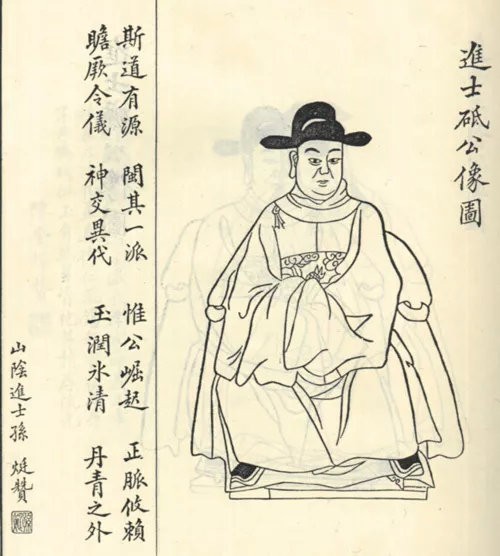 進士砥公像圖
斯道有源 閩其一派 惟公崛起 正脈攸賴
瞻厥令儀 神交異代 玉潤氷清 丹青之外
山陰進士孫 烶贊